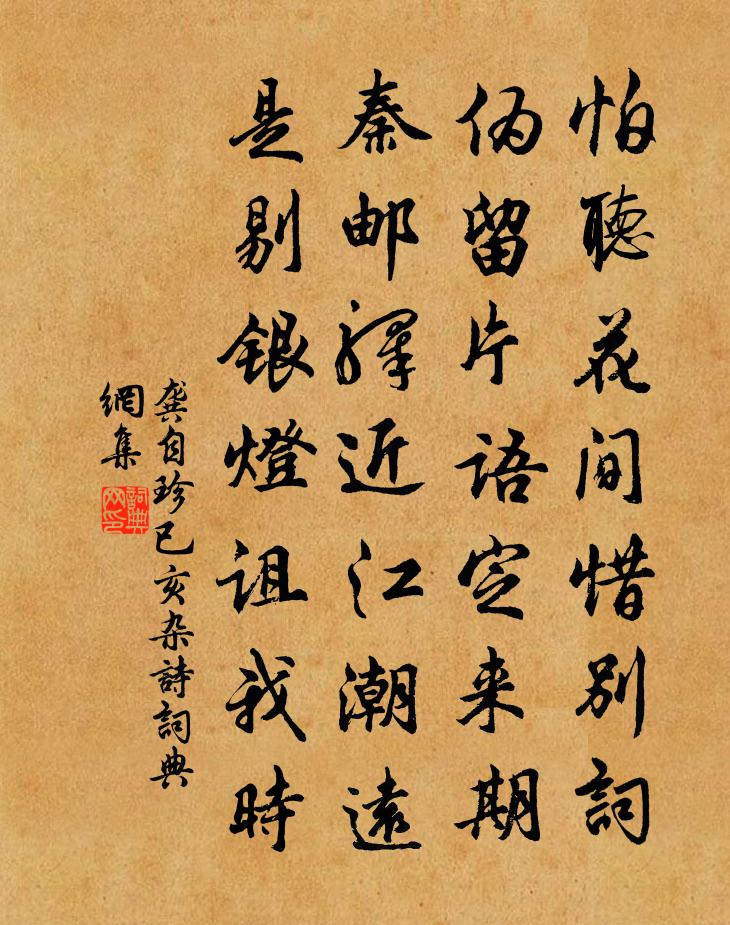 怕聽花间惜别詞
伪留片语定来期
秦邮驿近江潮遠
是剔银燈诅我時
龚自珍己亥杂詩詞典
網集
詞典网印